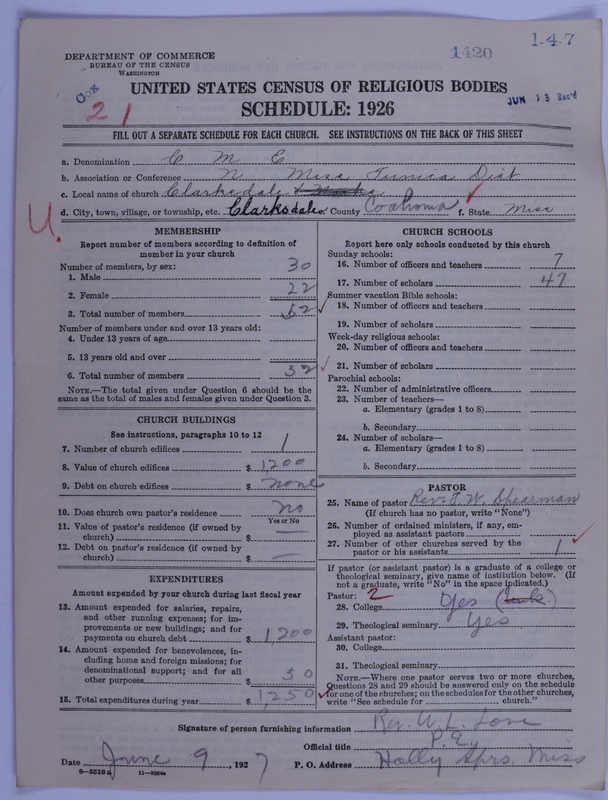 DEPARTMENT OF COMMERCE
BUREAU OF THE CENSUS
WASHINGTON
1420
1-4-7
21
JUN 13 Rec'd
UNITED STATES CENSUS OF RELIGIOUS BODIES
SCHEDULE: 1926
FILL OUT A SEPARATE SCHEDULE FOR EACH CHURCH. SEE INSTRUCTIONS ON THE BACK OF THIS SHEET
a. Denomination C M E
b. Association or Conference N Miss Tunica Dist
c. Local name of church Clarksdale
d. City, town, village, or township, etc. Clarksdale County Coahoma f. State Miss
U.
MEMBERSHIP
Report number of members according to definition of member in your church
Number of members by sex:
1. Male 30
2. Female 22
3. Total number of members 52
Number of members under and over 13 years old:
4. Under 13 years of age
5. 13 years old and over
6. Total number of members 52
NOTE.—The total given under Question 6 should be the same as the total of males and females given under Question 3.
CHURCH BUILDINGS
See instructions, paragraphs 10 to 12
7. Number of church edifices 1
8. Value of church edifices $ 1,200
9. Debt on church edifices $ none
10. Does church own pastor's residence no
Yes or No
11. Value of pastor's residence (if owned by church) $ —
12. Debt on pastor's residence (if owned by church) $ —
EXPENDITURES
Amount expended by your church during last fiscal year
13. Amount expended for salaries, repairs, and other running expenses; for improvements or new buildings; and for payments on church debt $ 1,200
14. Amount expended for benevolences, including home and foreign missions; for denominational support; and for all other purposes $ 50
15. Total expenditures during year $ 1,250
CHURCH SCHOOLS
Report here only schools conducted by this church
Sunday schools:
16. Number of officers and teachers 7
17. Number of scholars 47
Summer vacation Bible schools:
18. Number of officers and teachers
19. Number of scholars
Week-day religious schools:
20. Number of officers and teachers
21. Number of scholars
Parochial schools:
22. Number of administrative officers
23. Number of teachers—
a. Elementary (grades 1 to 8)
b. Secondary
24. Number of scholars—
a. Elementary (grades 1 to 8)
b. Secondary
PASTOR
25. Name of pastor Rev. T. W. Shearman
(If church has no pastor, write "None")
26. Number of ordained ministers, if any, employed as assistant pastors
27. Number of other churches served by the pastor or his assistants 1
If pastor (or assistant pastor) is a graduate of a college or theological seminary, give name of institution below. (If not a graduate, write "No" in the space indicated.)
Pastor: 2
28. College Yes
29. Theological seminary Yes
Assistant pastor:
30. College
31. Theological seminary
NOTE.—Where one pastor serves two or more churches, Questions 28 and 29 should be answered only on the schedule for one of the churches; on the schedules for the other churches, write "See schedule for church."
Signature of person furnishing information Rev. W. L. Love
Official title P. E.
Date June 9, 1927 P. O. Address Holly Sprs. Miss
8-5518 a 11-9054a